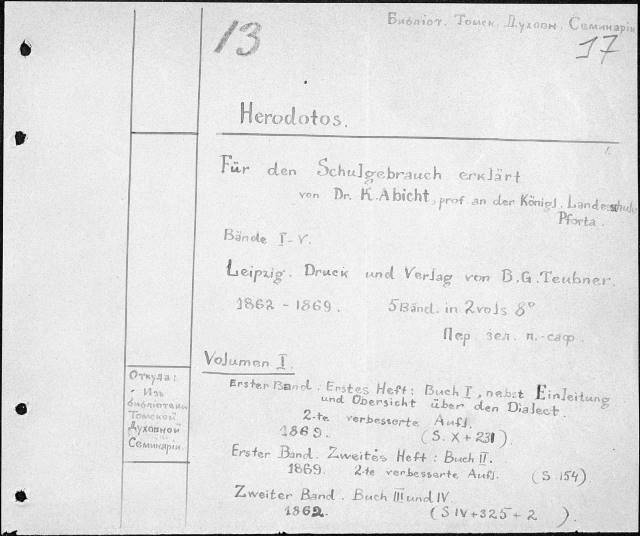 Библiот. Томск. Духовн. Семинарiи
13
17
Herodotos.
Für den Schulgebrauch erklärt
von Dr. K. Abicht, prof. an der Königl. Landesschule
Pforta.
Bände I-V.
Leipzig. Druck und Verlag von B.G. Teubner.
1862 - 1869. 5 Bänd. in 2 vols 8°
Пер. зел. п.-саф.
Volumen I.
Erster Band. Erstes Heft: Buch I, nebst Einleitung
und Übersicht über den Dialect.
2-te verbesserte Aufl.
1869. (S. X + 231).
Erster Band. Zweites Heft: Buch II.
1869. 2-te verbesserte Aufl. (S. 154)
Zweiter Band. Buch III und IV.
1862. (S IV + 325 + 2 ).
Откуда:
Изъ
библiотеки
Томской
Духовной
Семинарiи.